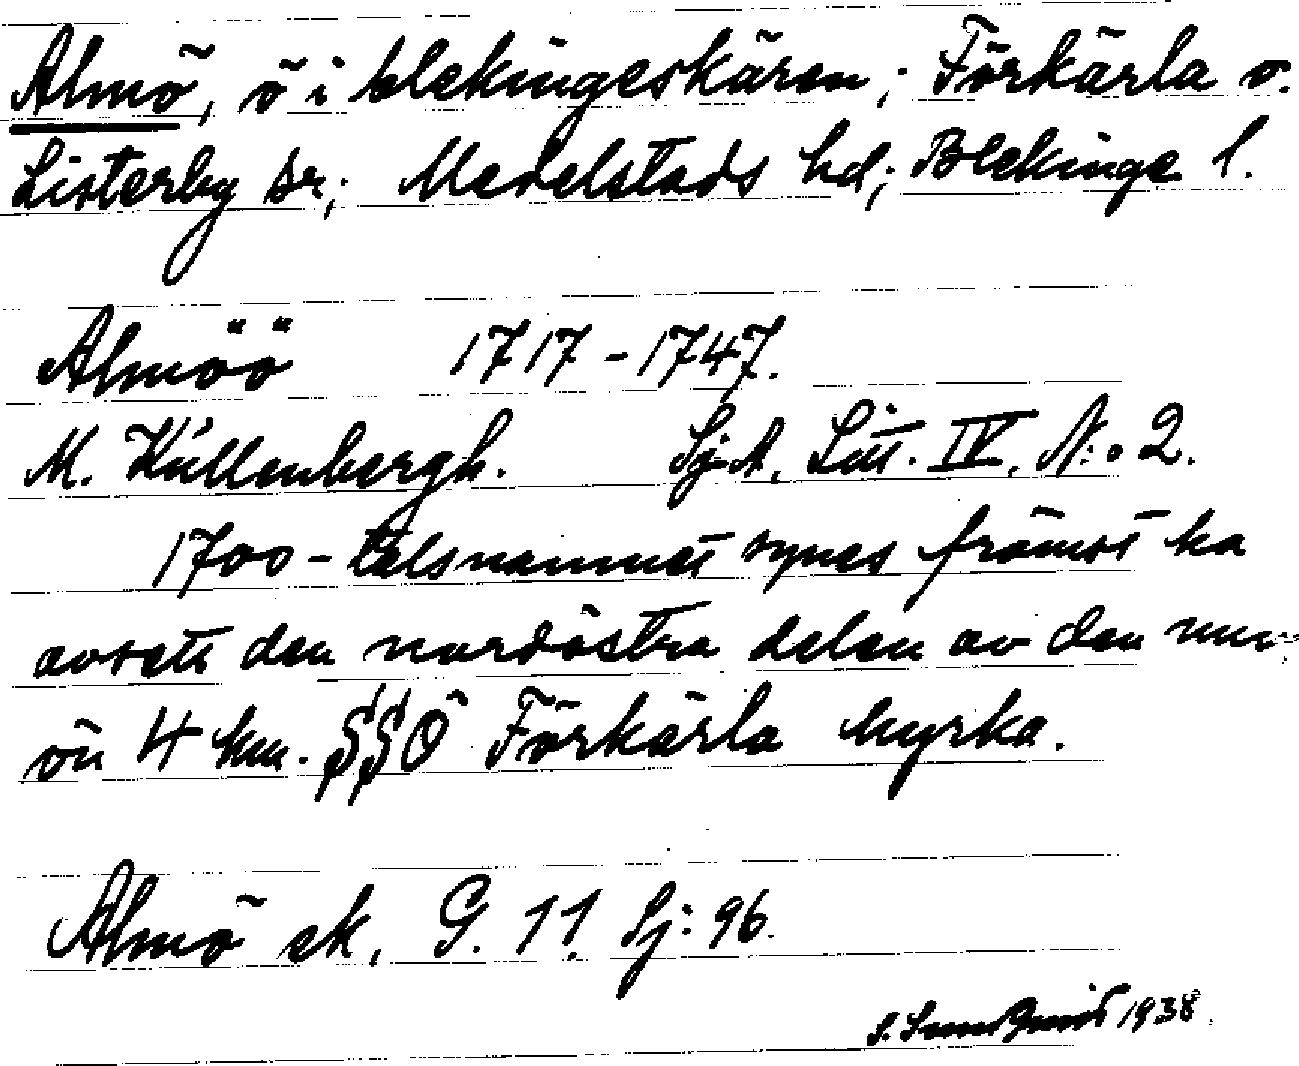 Almö, ö i blekingeskären; Förkärla o.
Listerby sr; Medelstads hd; Blekinge l.
Almöö 1717-1747.
M. Kullenbergh. Sj.A. Litt. IV. N:o 2.
1700-talsnamnet synes främst ha
avsett den nordöstra delen av den nuv.
ön 4 km. SSÖ Förkärla kyrka.
Almö ek, G. 11. Sj: 96.
1938